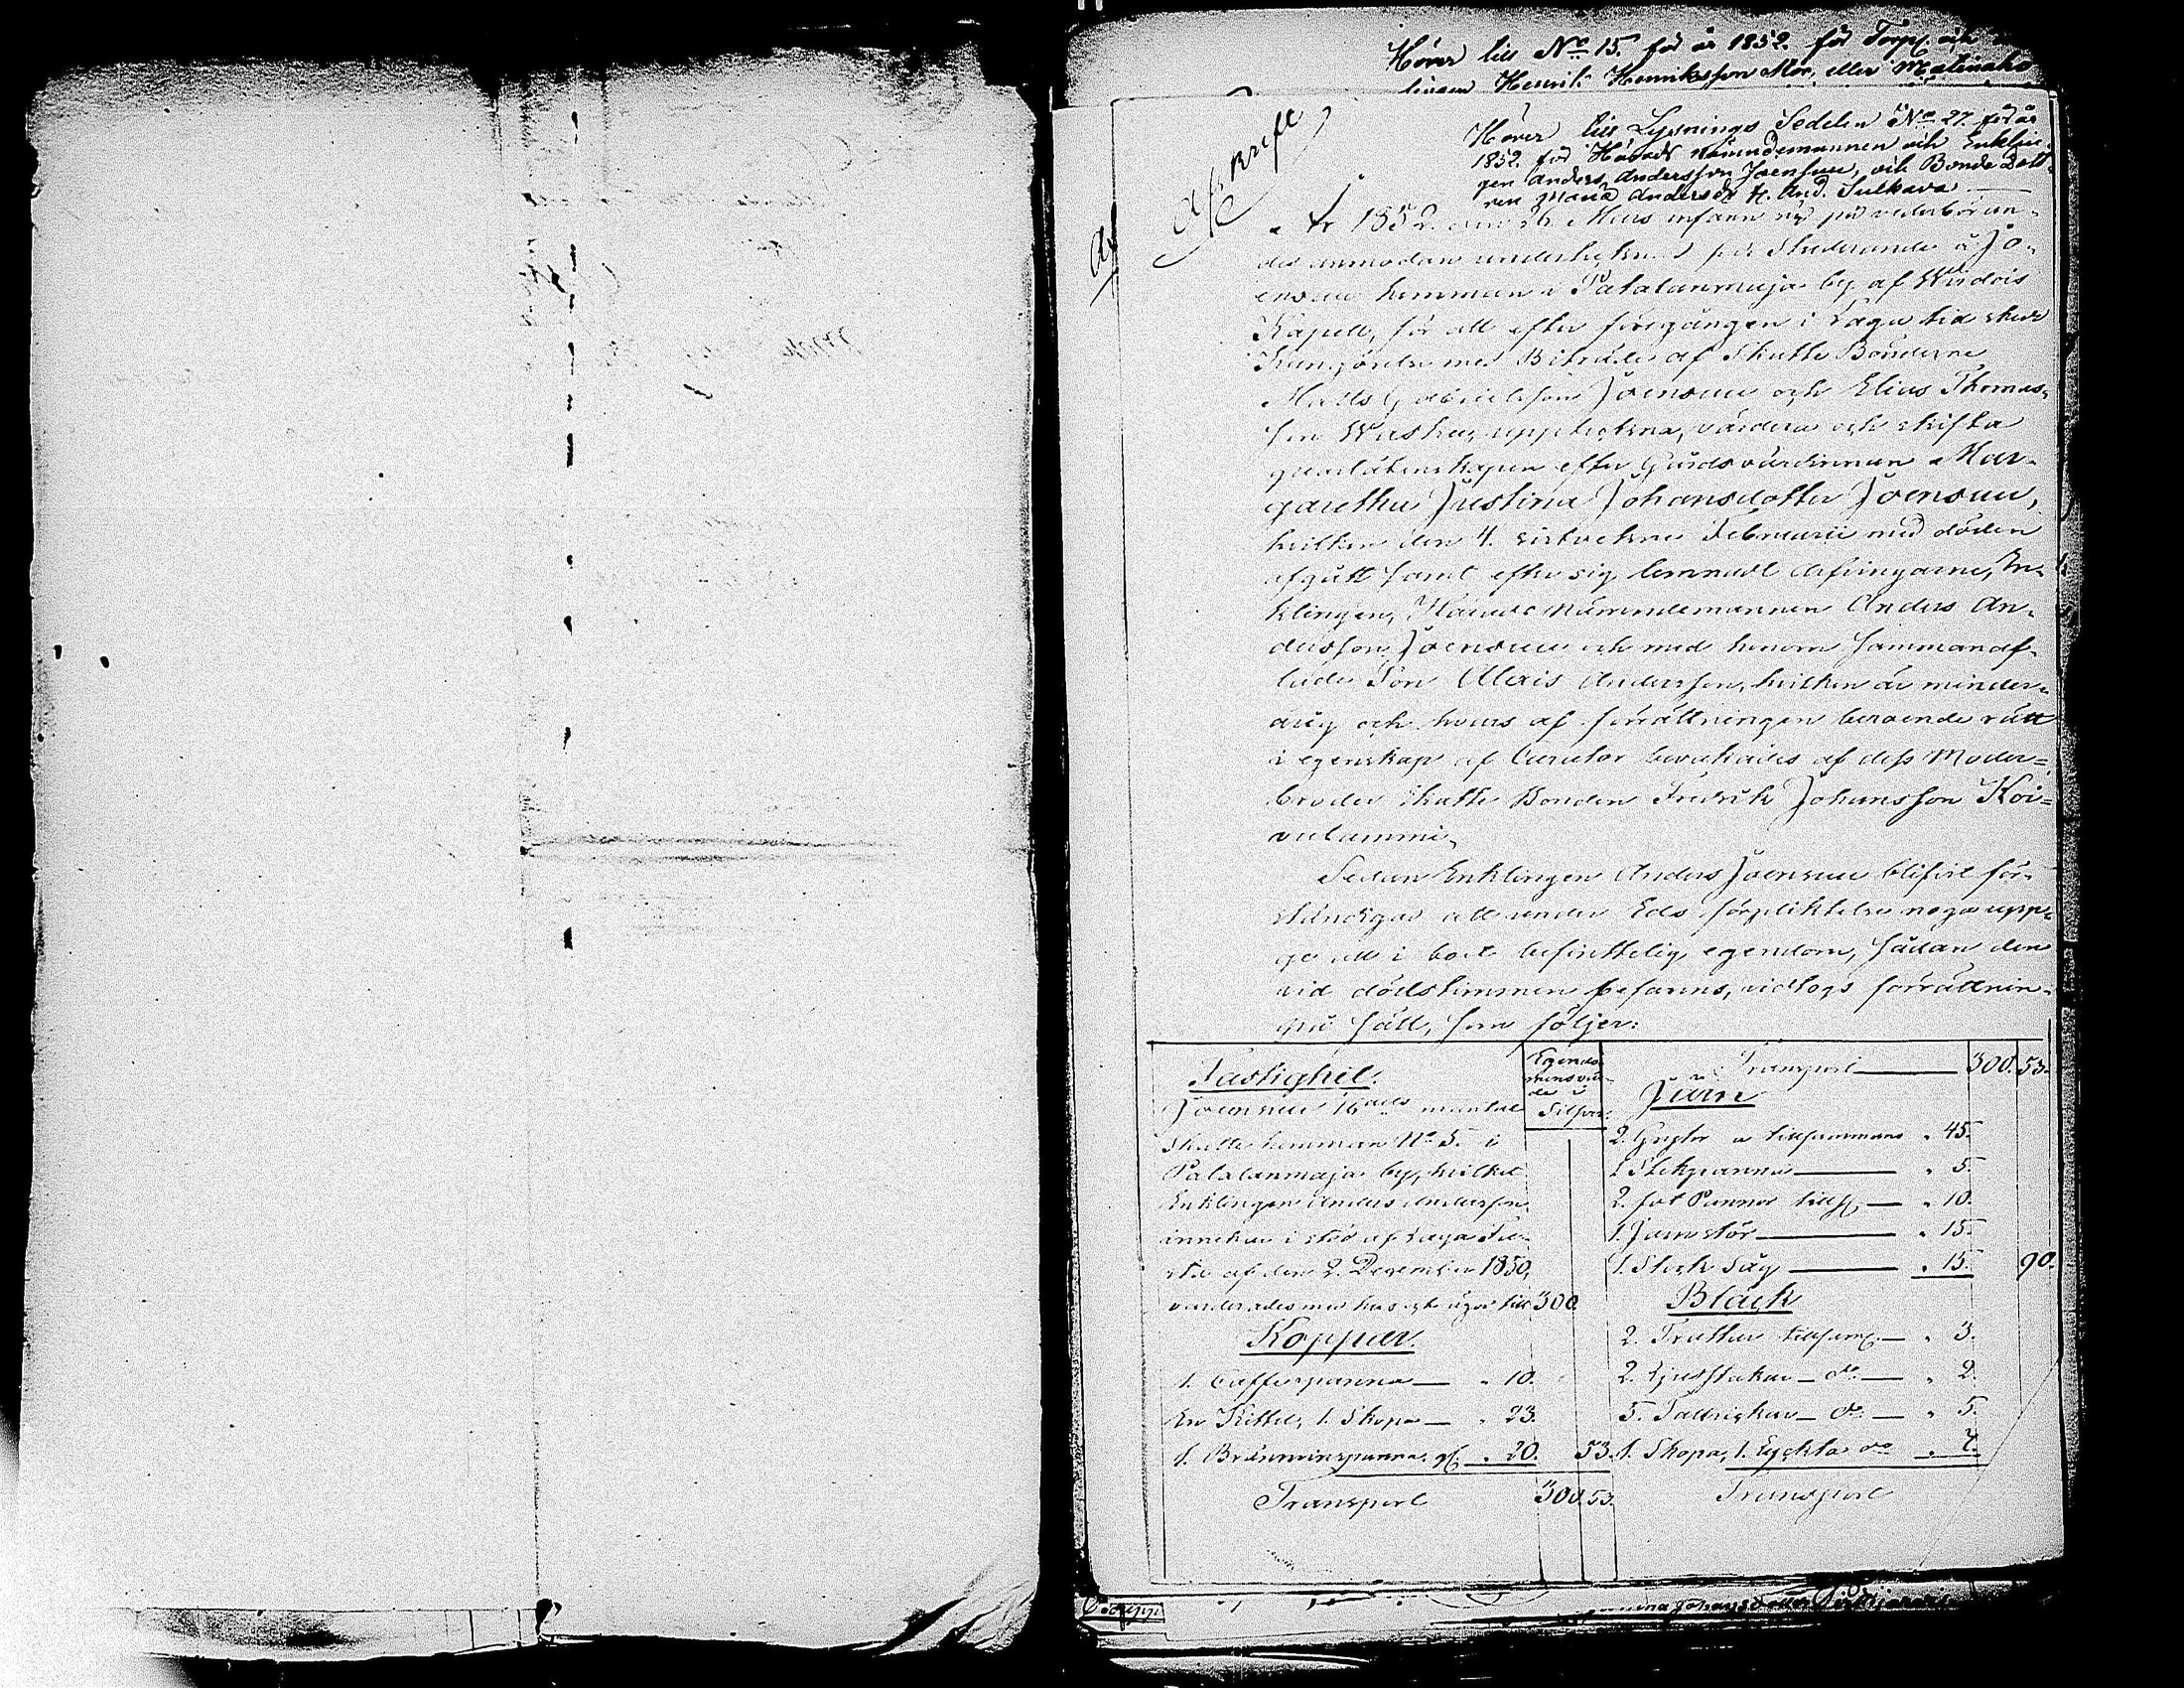 Hörer till No 15. för år 1852. för Torp. och
lingen Henrik Henriksson Mör, eller Mateinaho
Afskrift
Hörer till Lysnings Sedeln No 27. för år
1852. för Härads nämndemannen och Enklin
gen Anders Andersson Joensuu, och Bonde Dott-
ren Maria Andersdr H. And. Sulkava.
År 1852. den 26. Mars infann sig på vederböran-
des anmodan undertecknad på Studerande å Jo-
ensuu hemman i Patalanmaja by af Wirdois
Kapell, för att efter föregången i Laga tid skedd
Kungörelse med Biträde af Skatte Bönderne
Matts Gabrielsson Joensuu och Elias Thomas-
son Waskuu, uppteckna, värdera och skifta
qvarlåtenskapen efter Gårdsvärdinnan Mar-
garetha Justina Johansdotter Joensuu,
hvilken den 4. sistvekne Februarii med döden
afgått samt efter sig lemnadt arfvingarne, En-
klingen, Härads nämndemannen Anders An-
dersson Joensuu och med honom sammanaf-
lade Son Alexis Andersson, hvilken är minder-
årig och hvars af förrättningen beroende rätt
i egenskap af Curator bevakades af dess Moder-
broder Skatte Bonden Fredrik Johansson Koi-
vulammi.
Sedan Enklingen Anders Joensuu blifvit för-
ständigad att under Eds förpliktelse noga upp-
ge all i boet befinttelig egendom, sådan den
vid dödstimmen befanns, vidtogs förrättnin-
gen sätt, som följer:
Fastighet.
Joensuu 16dels mantal
Skatte hemman No 5. i
Patalanmaja by, hvilket
Enklingen Anders Andersson
innehar i stöd af Laga Fa-
sta af den 2. December 1850,
värderades med hus och ägor till 300.
Koppar.
1. Caffepanna — " 10.
En Kittel, 1. Skopa — " 23.
1. Brännvinspanna — " 20. 53.
Transport 300. 53.
Egendo-
mens vär-
de i
Silfver.
Transport — 300. 53.
Järn
2. Grytor tillsammans " 45.
1 Stekpanna — " 5.
2. fot Pannor tills — " 10.
1. Järnstör — " 15.
1. Stock Såg — " 15. 90.
Bläck
2. Trattar tillsam — " 3.
2. Ljusstakar — do — " 2.
5. Tallrickar — do — " 5.
1. Skopa, 1. Lyckta do "
Transport